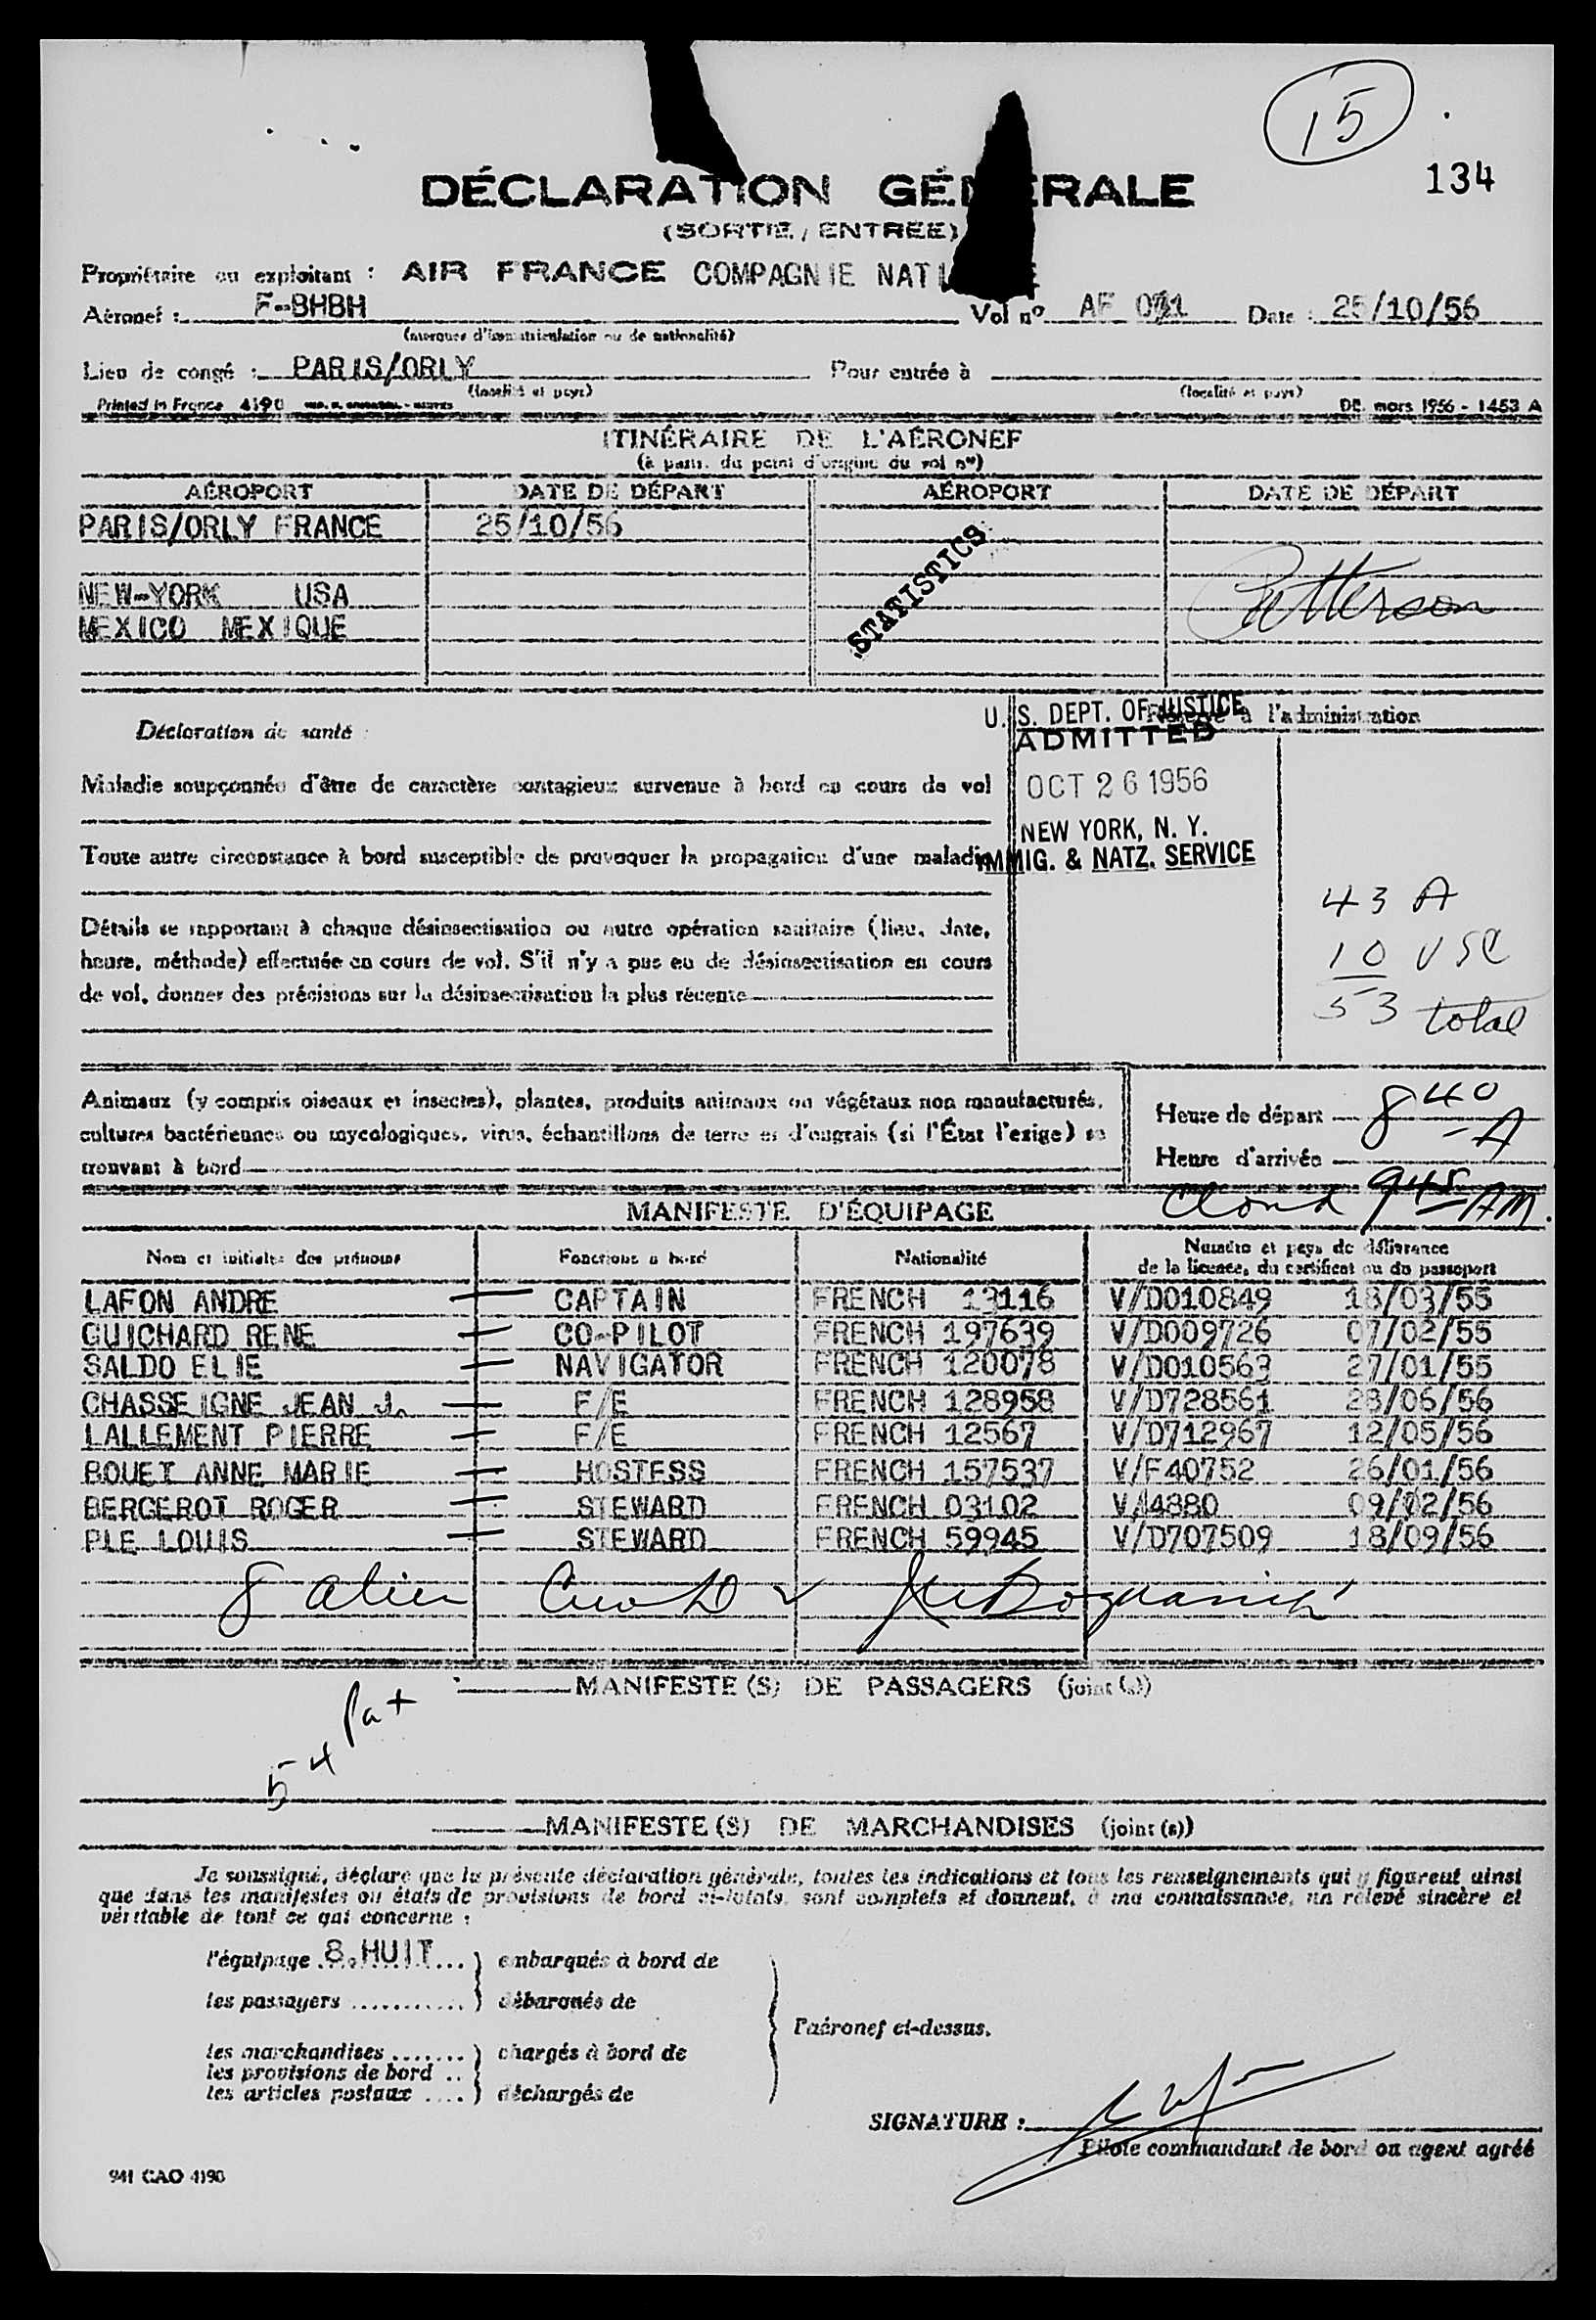 15
134
DÉCLARATION GÉNÉRALE
(SORTIE / ENTRÉE)
Propriétaire ou exploitant : AIR FRANCE COMPAGNIE NATI
Aéronef : F-BHBH Vol nº AF 071 Date : 25/10/56
(marques d'immatriculation ou de nationalité)
Lieu de congé : PARIS/ORLY Pour entrée à
(localité et pays) (localité et pays)
Printed in France 4190 DE. mars 1956 - 1453 A
ITINÉRAIRE DE L'AÉRONEF
(à partir du point d'origine du vol nº)
AÉROPORT DATE DE DÉPART AÉROPORT DATE DE DÉPART
PARIS/ORLY FRANCE 25/10/56
STATISTICS
NEW-YORK USA Patterson
MEXICO MEXIQUE
Déclaration de santé :
Réservé à l'administration
U. S. DEPT. OF JUSTICE
ADMITTED
OCT 26 1956
NEW YORK, N. Y.
IMMIG. & NATZ. SERVICE
Maladie soupçonnée d'être de caractère contagieux survenue à bord en cours de vol
Toute autre circonstance à bord susceptible de provoquer la propagation d'une maladie
Détails se rapportant à chaque désinsectisation ou autre opération sanitaire (lieu, date,
heure, méthode) effectuée en cours de vol. S'il n'y a pas eu de désinsectisation en cours
de vol, donner des précisions sur la désinsectisation la plus récente
43 A
10 USC
53 total
Animaux (y compris oiseaux et insectes), plantes, produits animaux ou végétaux non manufacturés,
cultures bactériennes ou mycologiques, virus, échantillons de terre et d'engrais (si l'État l'exige) se
trouvant à bord
Heure de départ 840 A
Heure d'arrivée
945 AM
MANIFESTE D'ÉQUIPAGE
Nom et initiales des prénoms Fonctions à bord Nationalité Numéro et pays de délivrance
de la licence, du certificat ou du passeport
LAFON ANDRE — CAPTAIN FRENCH 13116 V/D010849 18/03/55
GUICHARD RENE — CO-PILOT FRENCH 197639 V/D009726 07/02/55
SALDO ELIE — NAVIGATOR FRENCH 120078 V/D010563 27/01/55
CHASSEIGNE JEAN J. — F/E FRENCH 128958 V/D728561 28/06/56
LALLEMENT PIERRE — F/E FRENCH 12567 V/D712967 12/05/56
BOUET ANNE MARIE — HOSTESS FRENCH 157537 V/F40752 26/01/56
BERGEROT ROGER — STEWARD FRENCH 03102 V/4880 09/02/56
PLE LOUIS — STEWARD FRENCH 59945 V/D707509 18/09/56
8 alien Crew
MANIFESTE (S) DE PASSAGERS (joint (s))
54 Pax
MANIFESTE (S) DE MARCHANDISES (joint (s))
Je soussigné, déclare que la présente déclaration générale, toutes les indications et tous les renseignements qui y figurent ainsi
que dans les manifestes ou états de provisions de bord ci-joints, sont complets et donnent, à ma connaissance, un relevé sincère et
véritable de tout ce qui concerne :
l'équipage 8. HUIT embarqués à bord de
les passagers débarqués de
l'aéronef ci-dessus.
les marchandises chargés à bord de
les provisions de bord
les articles postaux déchargés de
SIGNATURE :
Pilote commandant de bord ou agent agréé
941 CAO 4190